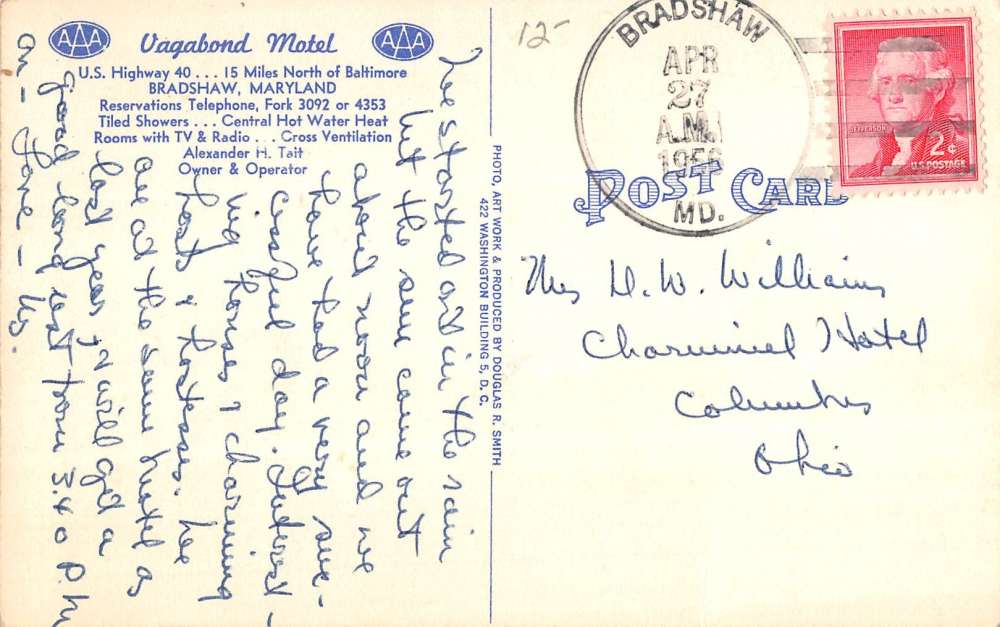 AAA Vagabond Motel AAA
U.S. Highway 40 ... 15 Miles North of Baltimore
BRADSHAW, MARYLAND
Reservations Telephone, Fork 3092 or 4353
Tiled Showers ... Central Hot Water Heat
Rooms with TV & Radio ... Cross Ventilation
Alexander H. Tait
Owner & Operator
We started out in the rain
but the sun came out
about noon and we
have had a very suc-
cessful day. Interest-
ing houses & charming
hosts & hostesses. We
are at the same motel as
last year, & will get a
good long rest from 3.40 P.M
on - Love -
PHOTO, ART WORK & PRODUCED BY DOUGLAS R. SMITH
422 WASHINGTON BUILDING 5, D.C.
12-
BRADSHAW
APR
27
A.M.
MD.
JEFFERSON
2¢
U.S. POSTAGE
POST CARD
Mrs D. W. Williams
Hotel
Columbus
Ohio